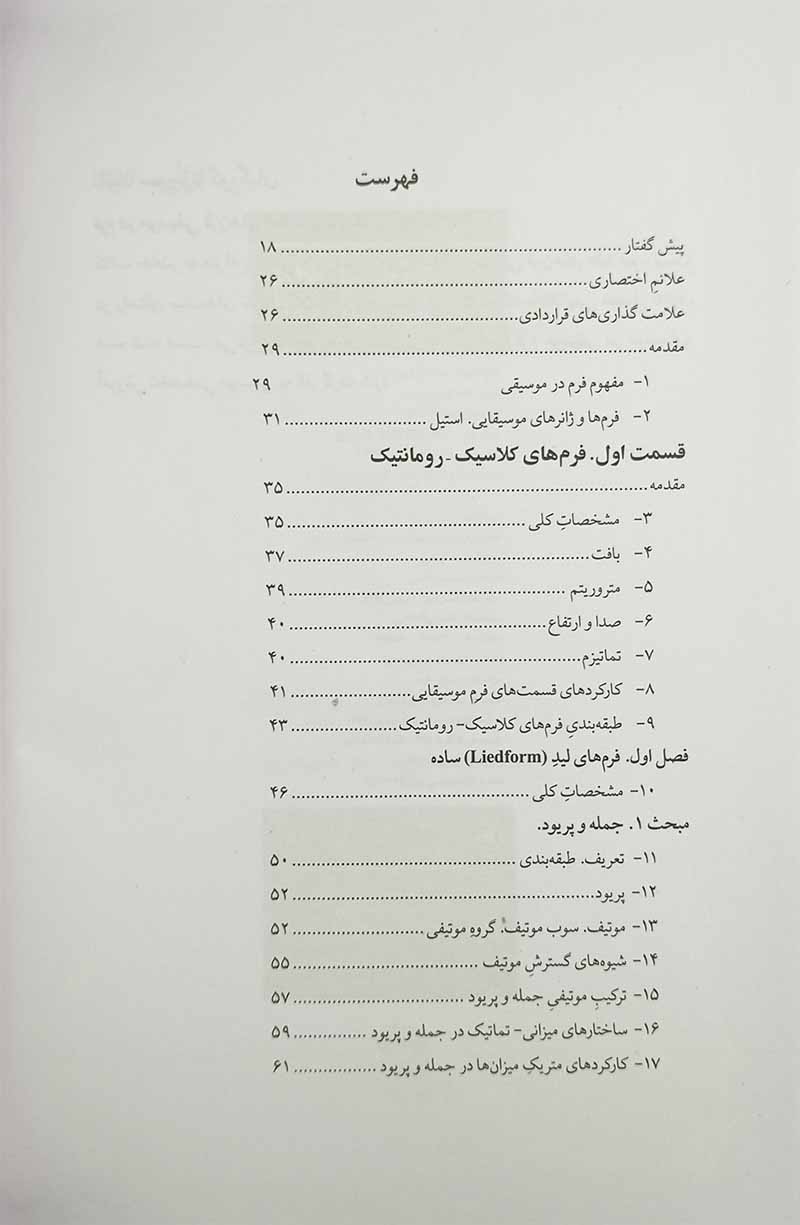 فهرست
پیش گفتار ........ ۱۸
علائم اختصاری ........ ۲۶
علامت گذاری‌های قراردادی ........ ۲۶
مقدمه ........ ۲۹
۱- مفهوم فرم در موسیقی ۲۹
۲- فرم‌ها و ژانرهای موسیقایی. استیل ........ ۳۱
قسمت اول. فرم‌های کلاسیک - رومانتیک
مقدمه ........ ۳۵
۳- مشخصاتِ کلی ........ ۳۵
۴- بافت ........ ۳۷
۵- متروریتم ........ ۳۹
۶- صدا و ارتفاع ........ ۴۰
۷- تماتیزم ........ ۴۰
۸- کارکردهای قسمت‌های فرم موسیقایی ........ ۴۱
۹- طبقه‌بندیِ فرم‌های کلاسیک- رومانتیک ........ ۴۳
فصل اول. فرم‌های لیدِ (Liedform) ساده
۱۰- مشخصاتِ کلی ........ ۴۶
مبحث ۱. جمله و پریود.
۱۱- تعریف. طبقه‌بندی ........ ۵۰
۱۲- پریود ........ ۵۲
۱۳- موتیف. سوب موتیف. گروهِ موتیفی ........ ۵۲
۱۴- شیوه‌های گسترشِ موتیف ........ ۵۵
۱۵- ترکیبِ موتیفیِ جمله و پریود ........ ۵۷
۱۶- ساختارهای میزانی- تماتیک در جمله و پریود ........ ۵۹
۱۷- کارکردهای متریکِ میزان‌ها در جمله و پریود ........ ۶۱